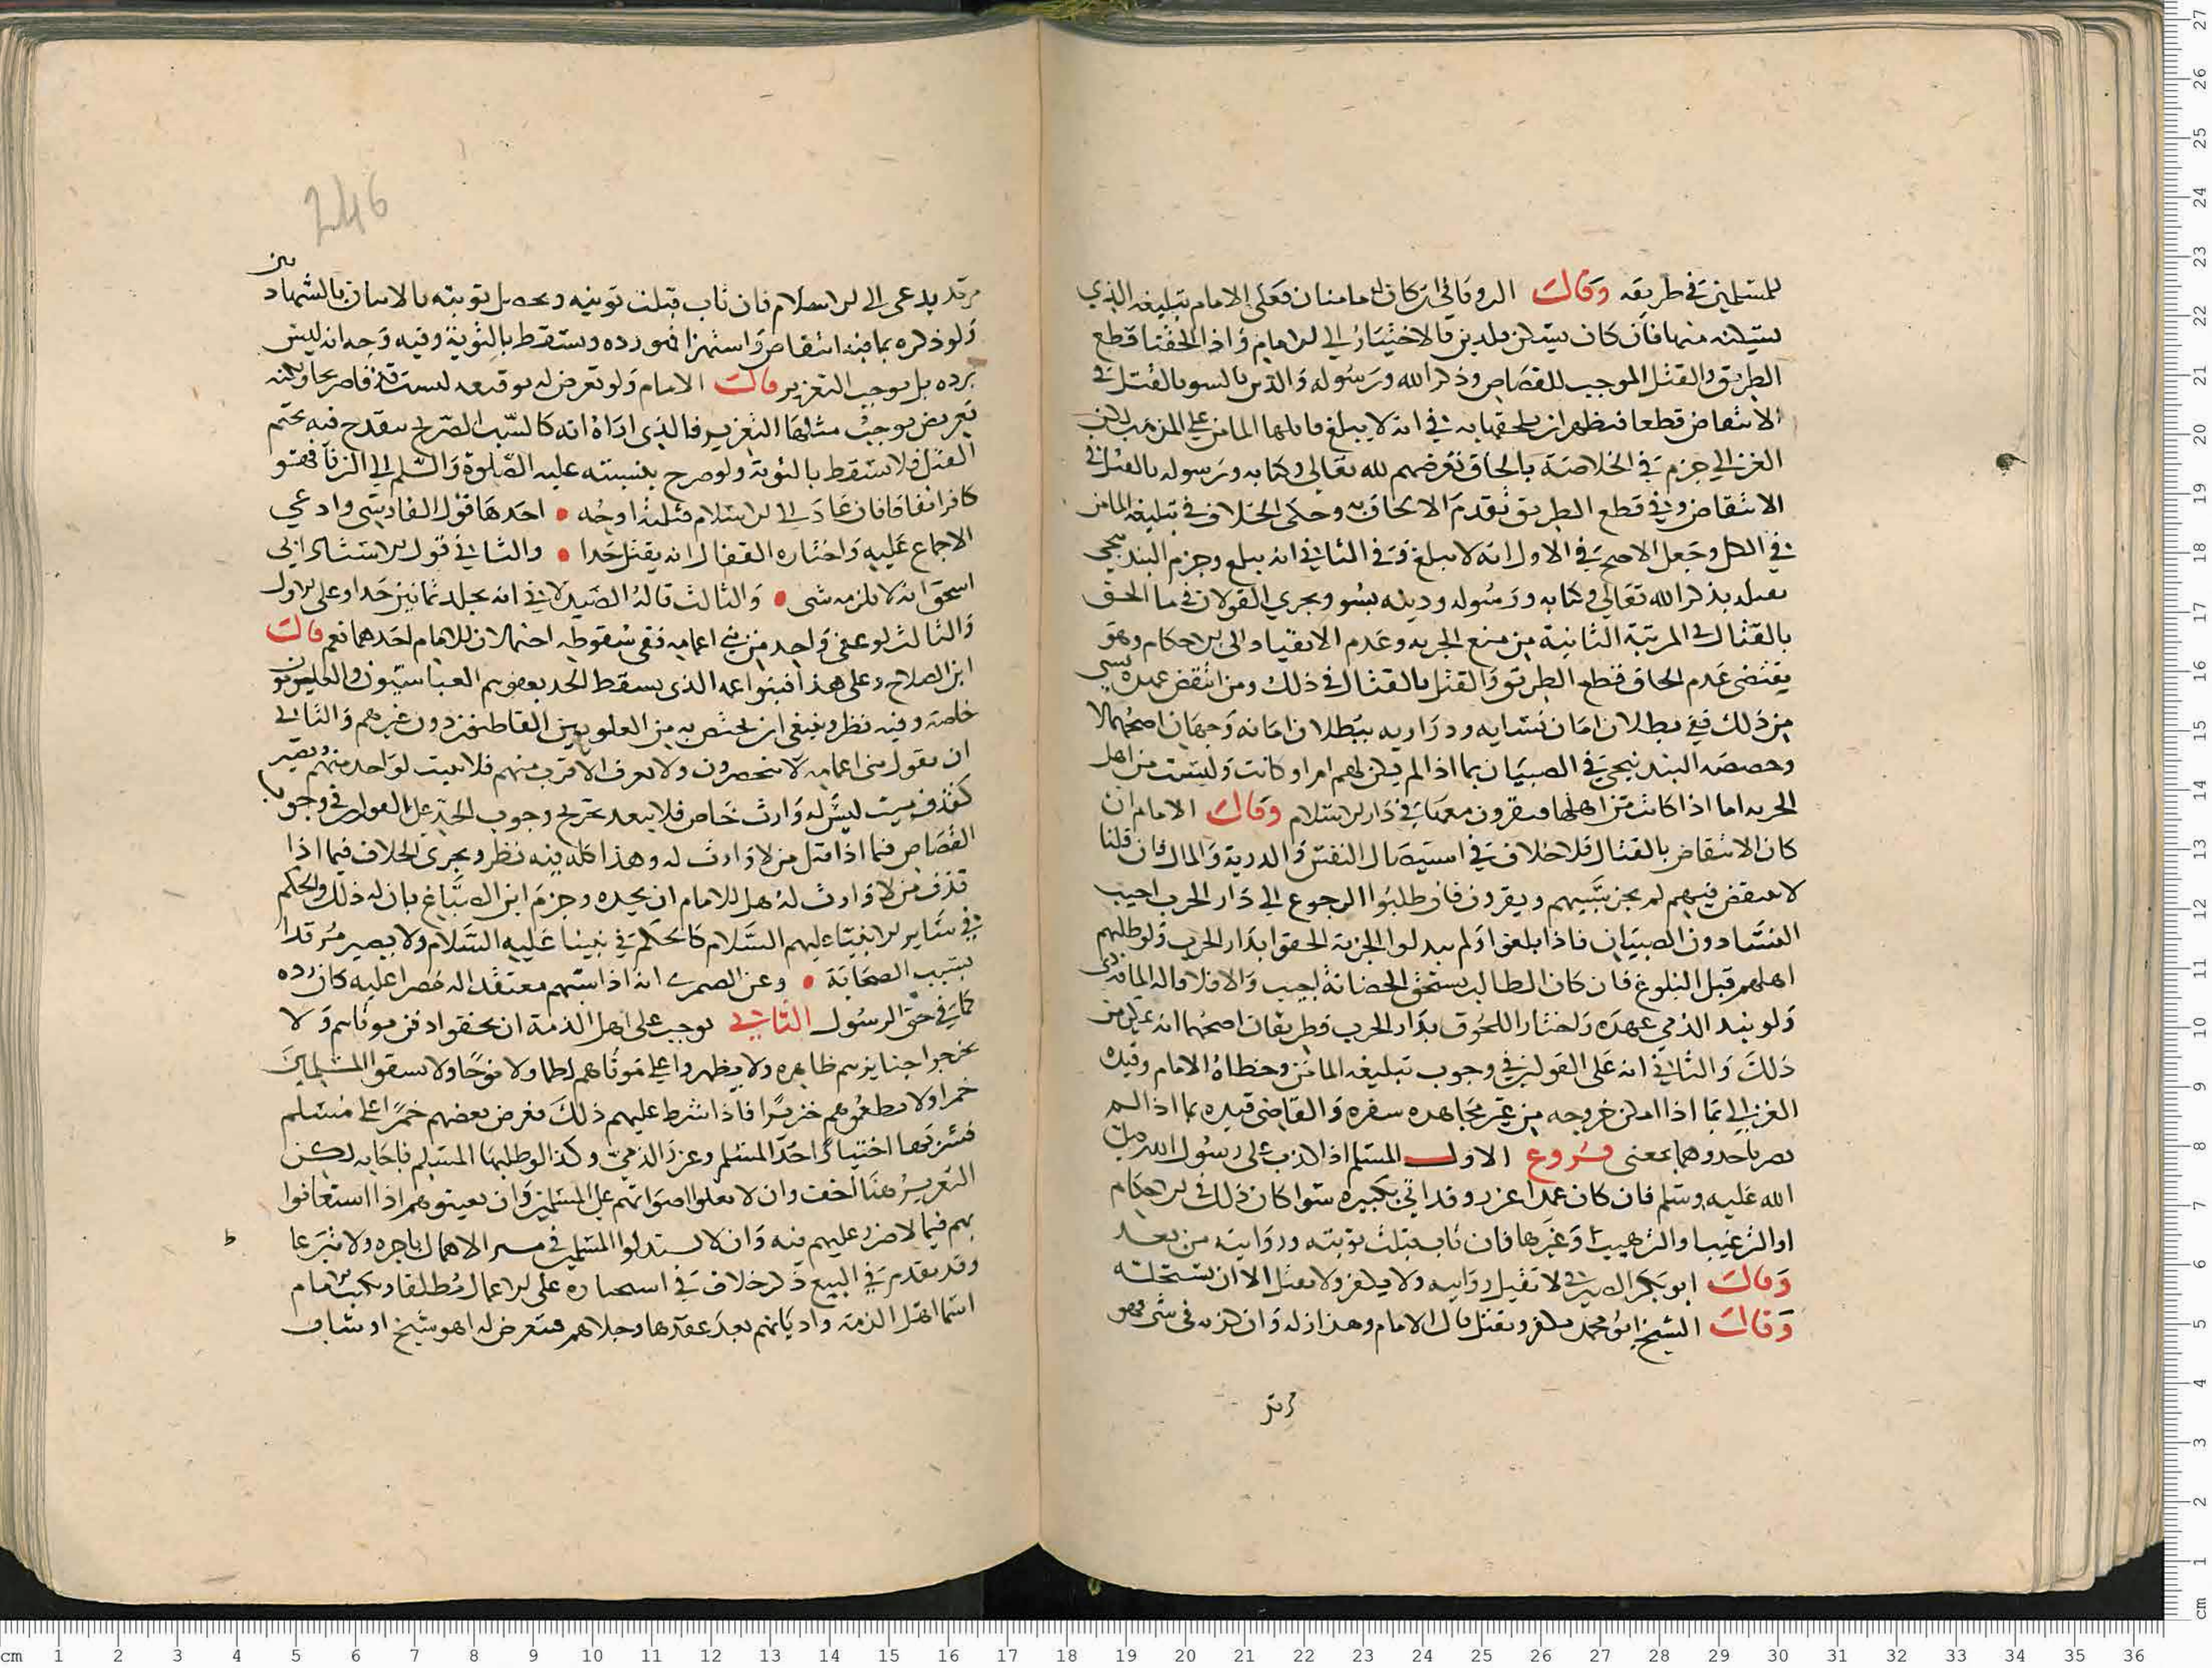 للمسلمين في طريقه وقال الروياني ان كان له مامنان فعلى الامام تبليغه الذي
يسكنه منهما فان كان يسكن بلدين فالاختيار الى الامام واذا الحقنا قطع
الطريق والقتل الموجب للقصاص وذكر الله ورسوله والدين بالسو بالقتل في
الانتقاض قطعا فيظهر ان يلحقها به في انه لا يبلغ فاعلها المامن على المذهب لكن
الغزالي جزم في الخلاصة بالحاق تعرضهم لله تعالى وكتابه ورسوله بالقتل في
الانتقاض وفي قطع الطريق تقدم الالحاق به وحكى الخلاف في تبليغه المامن
في الكل وجعل الاصح في الاول انه لا يبلغ وفي الثاني انه يبلغ وجزم البندنيجي
بقتله بذكر الله تعالى وكتابه ورسوله ودينه بسو ويجري القولان في ما الحق
بالقتال في المرتبة الثانية من منع الجزيه وعدم الانقياد الى الاحكام وهو
يقتضي عدم الحاق قطع الطريق والقتل بالقتال في ذلك ومن انتقض عهده بشي
من ذلك ففي بطلان امان نسايه وذراريه ببطلان امانه وجهان اصحهما لا
وخصصه البندنيجي في الصبيان بما اذا لم يكن لهم ام او كانت وليست من اهل
الجزيه اما اذا كانت من اهلها فيقرون معها في دار الاسلام وقال الامام ان
كان الانتقاض بالقتال فلا خلاف في استيصال النفس والذرية والمال فان قلنا
لا ينتقض فيهم لم يجز سبيهم ويقرون فان طلبوا الرجوع الى دار الحرب اجيب
النسا دون الصبيان فاذا بلغوا ولم يبذلوا الجزية الحقوا بدار الحرب ولو طلبهم
اهلهم قبل البلوغ فان كان الطالب يستحق الحضانة اجيب والا فلا قاله الماوردي
ولو نبذ الذمي عهده واختار اللحوق بدار الحرب فطريقان اصحهما انه يمكن من
ذلك والثاني انه على القولين في وجوب تبليغه المامن وخطاه الامام وقيده
الغزالي بما اذا امكن خروجه من غير مجاهده سفره والقاضي قيده بما اذا لم
يصر باحدوهما بمعنى فروع الاول المسلم اذا كذب على رسول الله صلى
الله عليه وسلم فان كان عمدا عزر وقد اتى بكبيره سوا كان ذلك في الاحكام
او الترغيب او الترهيب او غيرها فان تاب قبلت توبته وروايته من بعد
وقال ابو بكر الصيرفي لا تقبل روايته ولا يكفر ولا يقتل الا ان يستحله
وقال الشيخ ابو محمد يكفر ويقتل قال الامام وهذا زله وان كذبه في شي فهو
مرتد
246
مرتد يدعى الى الاسلام فان تاب قبلت توبته وتحصل توبته بالاتيان بالشهادتين
ولو ذكره بما فيه انتقاص واستهزا فهو رده ويستقط بالتوبة وفيه وجه انه ليس
برده بل يوجب التعزير قال الامام ولو تعرض له بوقيعه ليست قذفا صريحا ولكنه
تعريض يوجب مثلها التعزير فالذي اراه انه كالسب الصريح يقدح فيه بحتم
القتل فلا يسقط بالتوبة ولو صرح بنسبته عليه الصلوة والسلم الى الزنا فهو
كافر اتفاقا فان عاد الى الاسلام فثلثة اوجه احدها قول الفارسي وادعى
الاجماع عليه واختاره القفال انه يقتل حدا والثاني قول الاستاذ ابي
اسحق انه لا يلزمه شي والثالث قاله الصيدلاني انه يجلد ثمانين حدا وعلى الاول
والثالث لو عفى واحد من بني اعمامه ففي سقوطه احتمالان للامام احدهما نعم قال
ابن الصلاح وعلى هذا فبنو اعمامه الذي يسقط الحد بعضهم العباسيون والعلويون
خاصة وفيه نظر وينبغي ان يختص به من العلويين الفاطميين دون غيرهم والثاني
ان يقول بني اعمامه لا ينحصرون ولا يعرف الاقرب منهم فلا يثبت لواحد منهم ويصير
كقذف ميت ليس له وارث خاص فلا يبعد تخريج وجوب الحد على القولين في وجوب
القصاص فيما اذا قتل من لا وارث له وهذا كله فيه نظر ويجري الخلاف فيما اذا
قذف من لا وارث له هل للامام ان يحده وجزم ابن الصباغ بان له ذلك والحكم
في ساير الانبيا عليهم السلام كالحكم في نبينا عليه السلام ولا يصير مرتدا
بسبب الصحابة وعن الصمري انه اذا سبهم معتقدا له مصرا عليه كان رده
كما في حق الرسول الثاني يوجب على اهل الذمة ان يخفوا دفن موتاهم ولا
يخرجوا جنايزهم ظاهره ولا يظهروا على موتاهم لطما ولا نوحا ولا يسقوا المسلمين
خمرا ولا يطعموهم خنزيرا فاذا شرط عليهم ذلك فعرض بعضهم خمرا على مسلم
فشربها اختيارا حد المسلم وعزر الذمي وكذا لو طلبها المسلم فاجابه لكن
التعزير هنا اخف وان لا يعلوا اصواتهم على المسلمين وان يعينوهم اذا استعانوا
بهم فيما لا ضرر عليهم فيه وان لا يستذلوا المسلمين في الاعمال باجره ولا تبرعا
وقد تقدم في البيع ذكر خلاف في استيجاره على الاعمال مطلقا ويكتب الامام
اسما اهل الذمة واديانهم بعد عقدها وحلاهم فيتعرض له اهو شيخ او شاب